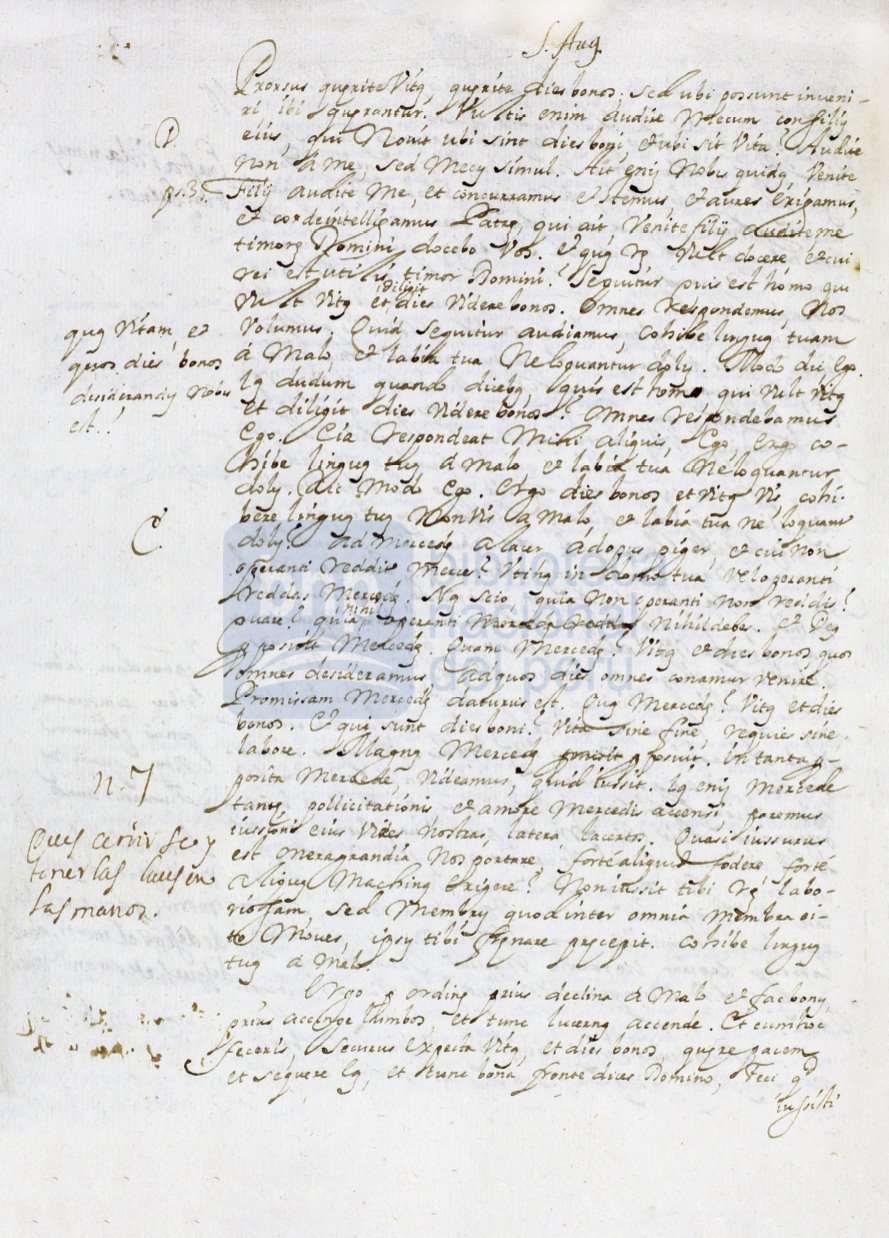 S. Aug.
Prorsus quęrite Vitą, quęrite dies bonos: sed ubi possunt inveni-
ri ibi quęrantur. Vultis enim audire Mecum consiliũ
eius, qui Novit ubi sint dies boni, et ubi sit Vita? Audite
non à me, sed Mecũ simul. Ait enĩ Nobis quidã, Venite
Filij audite Me, et concurramus et stemus et aures Erigamus,
et corde intelligamus Patrẽ, qui ait Venite filij audite me
timorẽ Domini docebo Vos. Et quid Vult docere et cui
rei est utilis timor Domini? Sequitur quis est homo qui
Vult Vitã et diligit dies Videre bonos. Omnes Respondemus, Nos
Volumus. Quid sequitur audiamus, cohibe linguã tuam
à Malo et labia tua Ne loquantur dolũ. Modo dic Ego.
Iã dudum quando dicebã quis est homo qui Vult Vitã
et diligit dies Videre bonos? Omnes respondebamus
Ego. Eia respondeat Mihi aliquis, Ego, Ergo co-
hibe linguã tuã à Malo et labia tua, Ne loquantur
dolũ. Dic Modo Ego. Ergo dies bonos et Vitã Vis cohi-
bere linguã tuã Non Vis à Malo, et labia tua ne loquant
dolũ? Ad Mercedẽ alacer ad opus piger, et cui Non
operanti reddis Merces? Utinã in domo tua Vel operanti
reddas Mercedẽ. Nã scio quia Non operanti non reddis!
quare? quia Non operanti Nihil debes. Et Deus
posuit Mercedẽ. Quam Mercedẽ? Vitã et dies bonos quos
omnes desideramus, ad quos dies omnes conamur Venire.
Promissam Mercedẽ daturus est. Quã Mercedẽ? Vitã et dies
bonos. Et qui sunt dies boni? Vita sine fine, requies sine
labore. Magnã Mercedẽ posuit. In tanta pro-
posita Mercede, Videamus, quid iussit. Iã enĩ Mercede
tantę pollicitationis et amore Mercedis accensi paremus
iussioni eius Vires Nostras, latera, lacertos. Quasi iussurus
est onera grandia Nos portare forte aliquid fodere forte
aliquã Machinã Erigere? Non iussit tibi rẽ labo-
riosam, sed Membrũ quod inter omnia Membra ci-
tò Moves, ipsũ tibi frenare pręcepit. Cohibe linguã
tuã à Malo.
Ergo ordine prius declina à Malo et fac bonũ,
prius accinge lumbos, et tunc lucernã accende. Et cum hoc
feceris, securus Expecta Vitã, et dies bonos, quęre pacem
et sequere Eã, et tunc bona fronte dices Domino, Feci qd
iussisti
ps. 33.
quã Vitam et
quos dies bonos
desiderandũ Nobis
est.
C.
n. 7
Ques ceñirse y
tener las luces en
las manos.